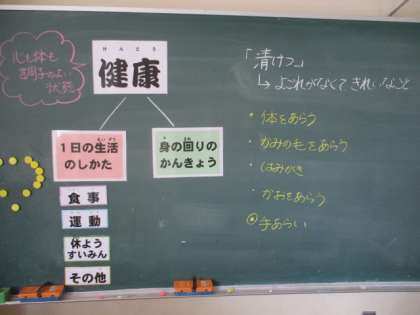 心も体も
調子のよい
状態
けんこう
健康
1日の生活
のしかた
身の回りの
かんきょう
食事
運動
休よう
すいみん
その他
「清けつ」
↳よごれがなくてきれいなこと
・体をあらう
・かみの毛をあらう
・はみがき
・かおをあらう
・手あらい